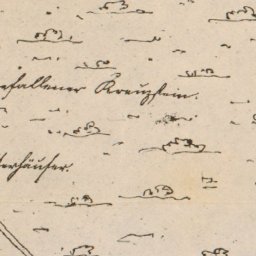 efallener Kreuzstein.
terhäuser.